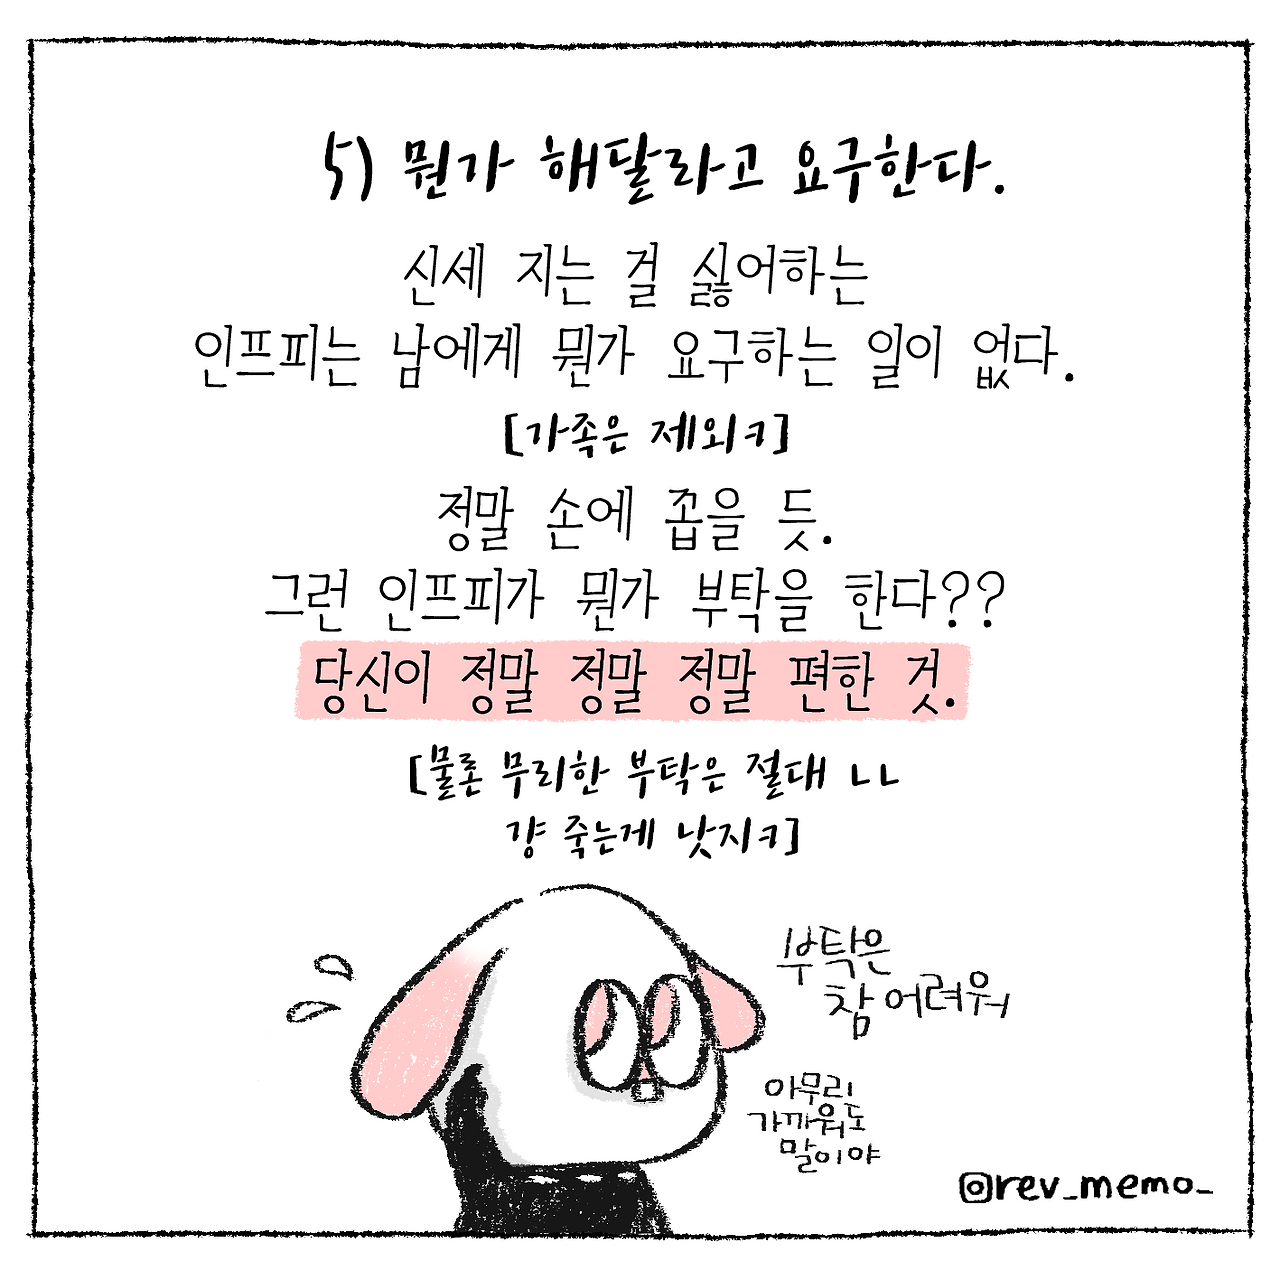 5) 뭔가 해달라고 요구한다.
신세 지는 걸 싫어하는
인프피는 남에게 뭔가 요구하는 일이 없다.
[가족은 제외ㅋ]
정말 손에 꼽을 듯.
그런 인프피가 뭔가 부탁을 한다??
당신이 정말 정말 정말 편한 것.
[물론 무리한 부탁은 절대 ㄴㄴ
걍 죽는게 낫지ㅋ]
부탁은
참 어려워
아무리
가까워도
말이야
@rev_memo_